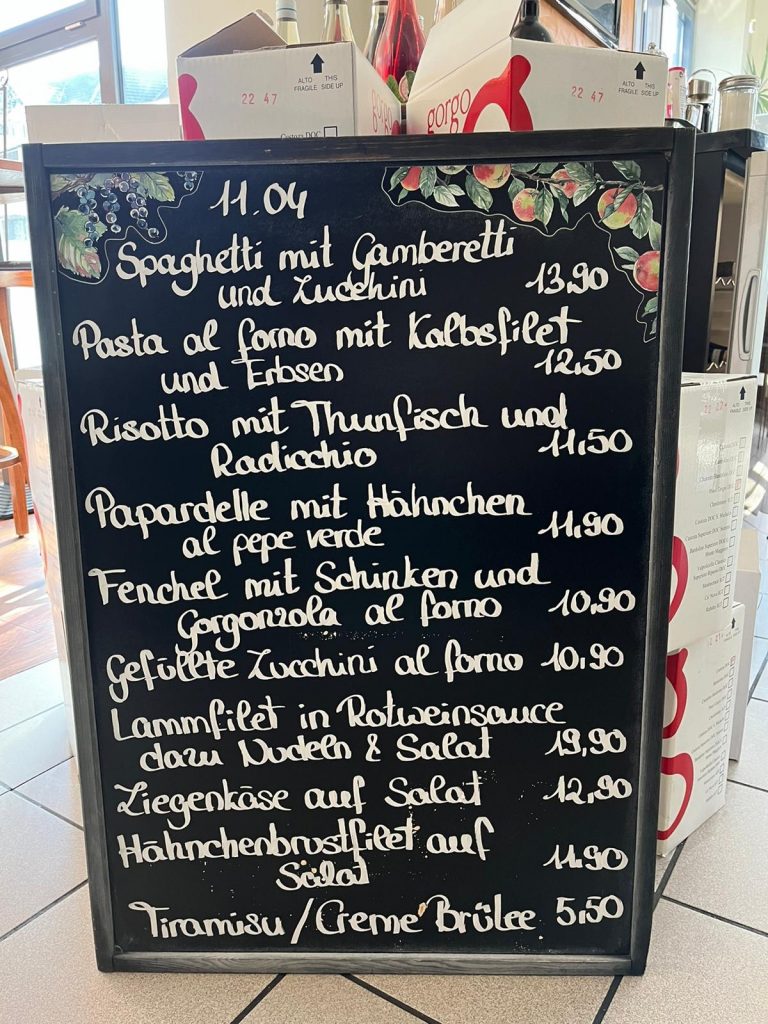 ALTO THIS
FRAGILE SIDE UP
22 47
gorgo
22 47
ALTO THIS
FRAGILE SIDE UP
Custoza DOC
11.04
Spaghetti mit Gamberetti
und Zucchini 13,90
Pasta al forno mit Kalbsfilet
und Erbsen 12,50
Risotto mit Thunfisch und
Radicchio 11,50
Papardelle mit Hähnchen
al pepe verde 11,90
Fenchel mit Schinken und
Gorgonzola al forno 10,90
Gefüllte Zucchini al forno 10,90
Lammfilet in Rotweinsauce
dazu Nudeln & Salat 19,90
Ziegenkäse auf Salat 12,90
Hähnchenbrustfilet auf
Salat 11,90
Tiramisu/Creme Brülee 5,50